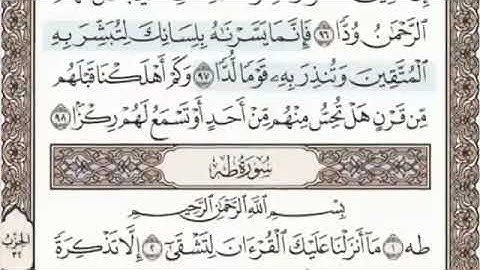 الرَّحْمَٰنُ وُدًّا ٩٦ فَإِنَّمَا يَسَّرْنَٰهُ بِلِسَانِكَ لِتُبَشِّرَ بِهِ
الْمُتَّقِينَ وَتُنذِرَ بِهِۦ قَوْمًا لُّدًّا ٩٧ وَكَمْ أَهْلَكْنَا قَبْلَهُم
مِّن قَرْنٍ هَلْ تُحِسُّ مِنْهُم مِّنْ أَحَدٍ أَوْ تَسْمَعُ لَهُمْ رِكْزًا ٩٨
سُورَةُ طه
بِسْمِ اللَّهِ الرَّحْمَٰنِ الرَّحِيمِ
طه ١ مَا أَنزَلْنَا عَلَيْكَ الْقُرْءَانَ لِتَشْقَىٰ ٢ إِلَّا تَذْكِرَةً
الحزب
٣٢